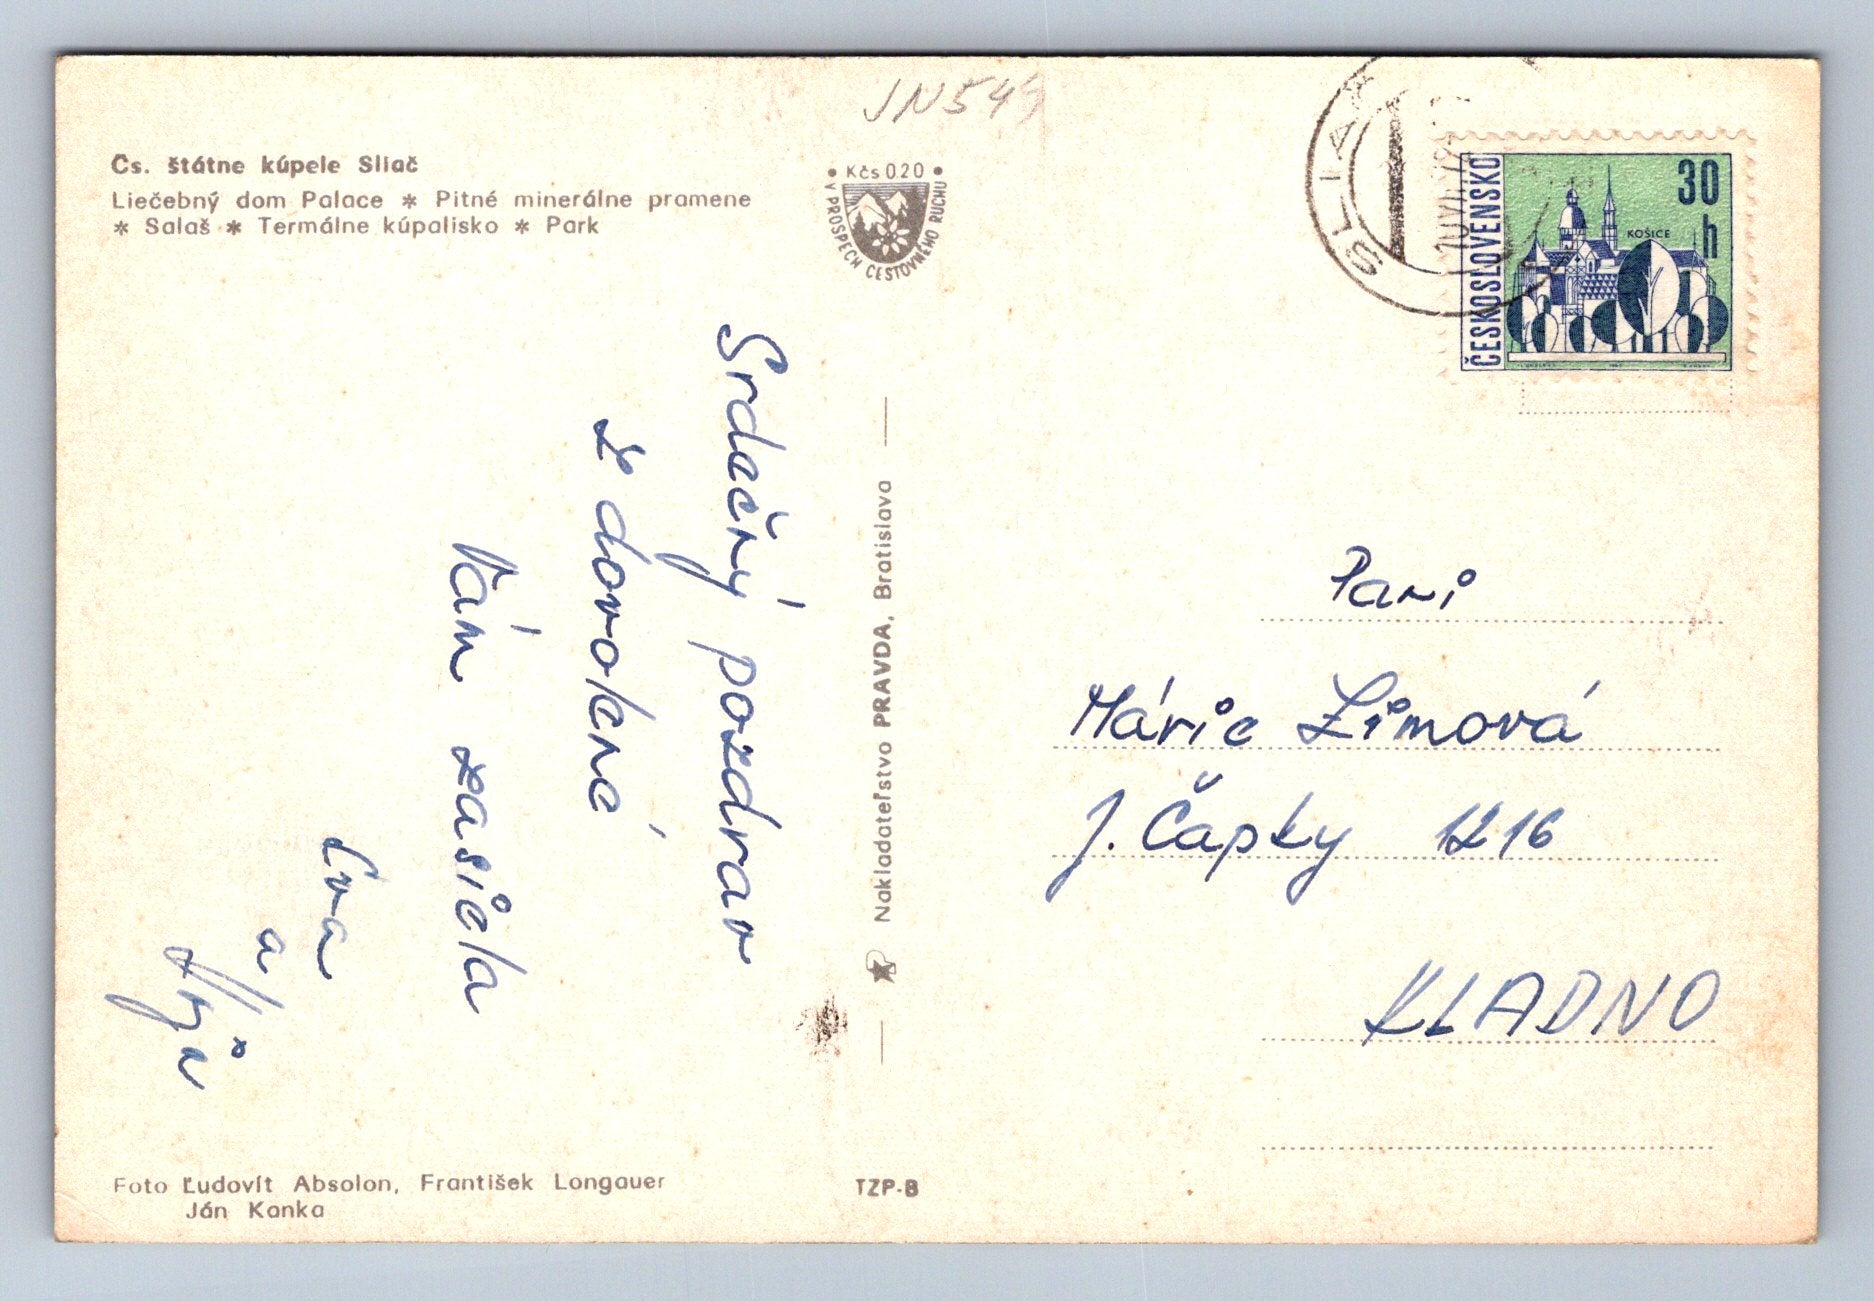 JN549
Čs. štátne kúpele Sliač
Liečebný dom Palace * Pitné minerálne pramene
* Salaš * Termálne kúpalisko * Park
• Kčs 0.20 •
V PROSPECH CESTOVNÉHO RUCHU
SLIAČ
ČESKOSLOVENSKO
30
h
KOŠICE
Srdečný pozdrav
z dovolené
Vám zasiela
Eva
a
Nakladateľstvo PRAVDA, Bratislava
Pani
Márie Zimová
J. Čapky 1216
KLADNO
Foto Ľudovít Absolon, František Longauer
Ján Kanka
TZP-B